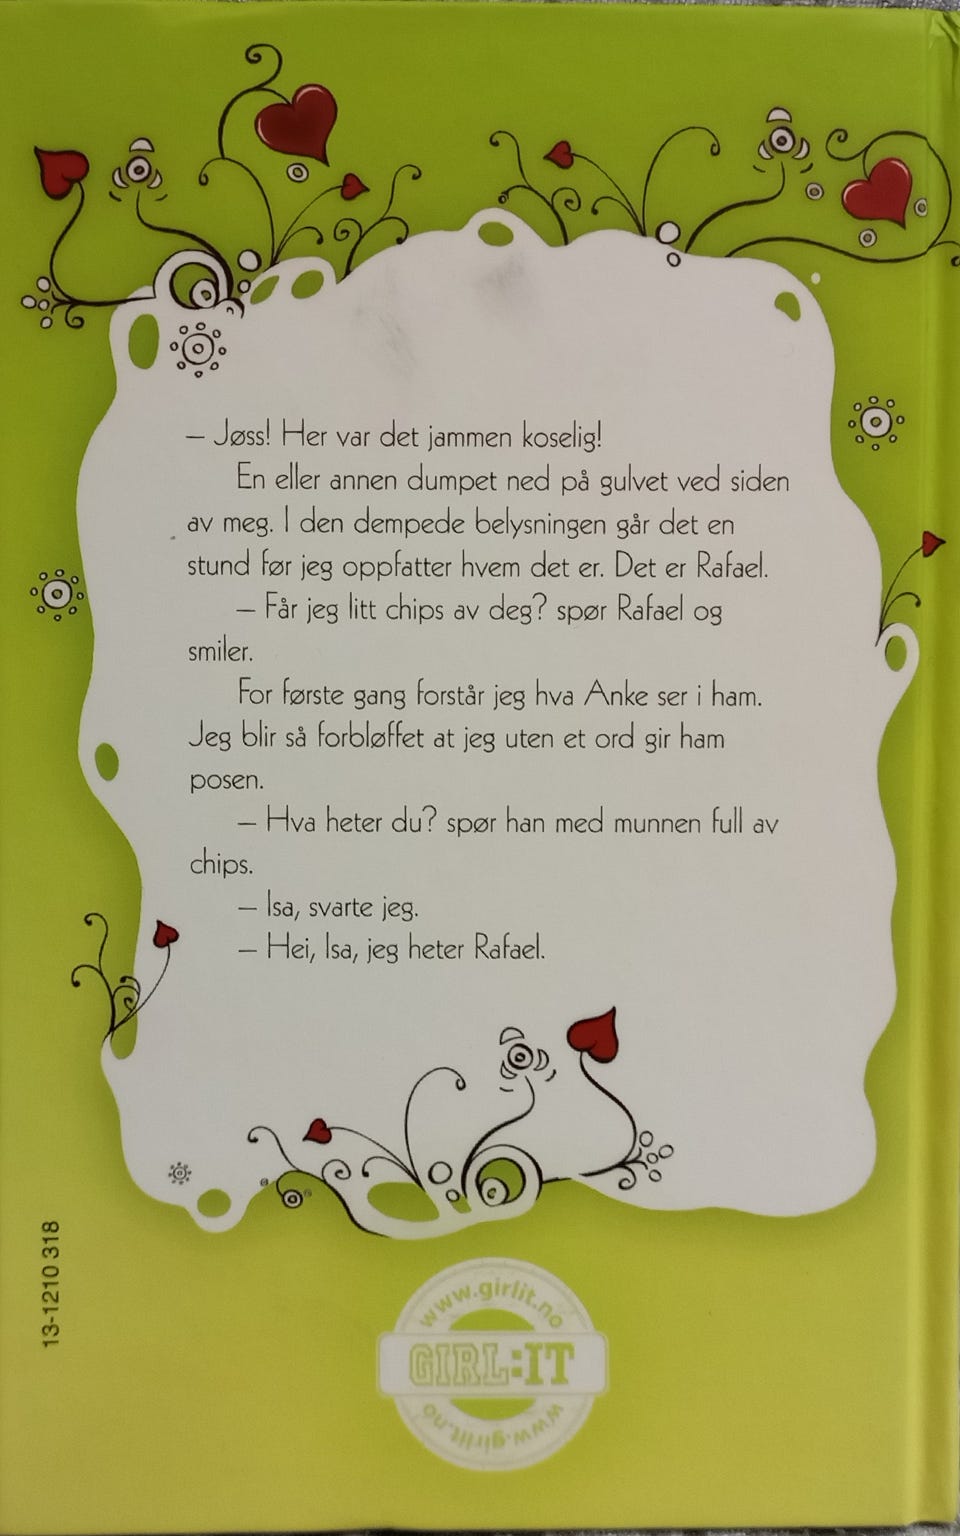 – Jøss! Her var det jammen koselig!
En eller annen dumpet ned på gulvet ved siden
av meg. I den dempede belysningen går det en
stund før jeg oppfatter hvem det er. Det er Rafael.
– Får jeg litt chips av deg? spør Rafael og
smiler.
For første gang forstår jeg hva Anke ser i ham.
Jeg blir så forbløffet at jeg uten et ord gir ham
posen.
– Hva heter du? spør han med munnen full av
chips.
– Isa, svarte jeg.
– Hei, Isa, jeg heter Rafael.
13-1210 318
www.girlit.no
GIRL:IT
www.girlit.no